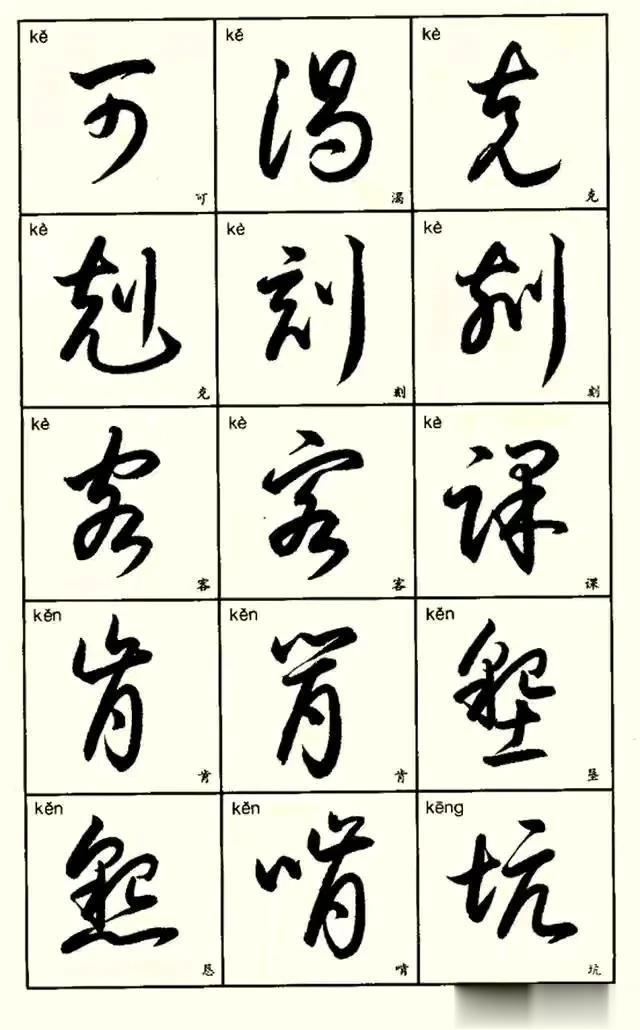 kě kě kè
可 渴 克
可 渴 克
kè kè kè
剋 刻 刻
克 刻 刻
kè kè kè
客 客 課
客 客 课
kěn kěn kěn
肯 肯 墾
肯 肯 垦
kěn kěn kēng
懇 啃 坑
恳 啃 坑